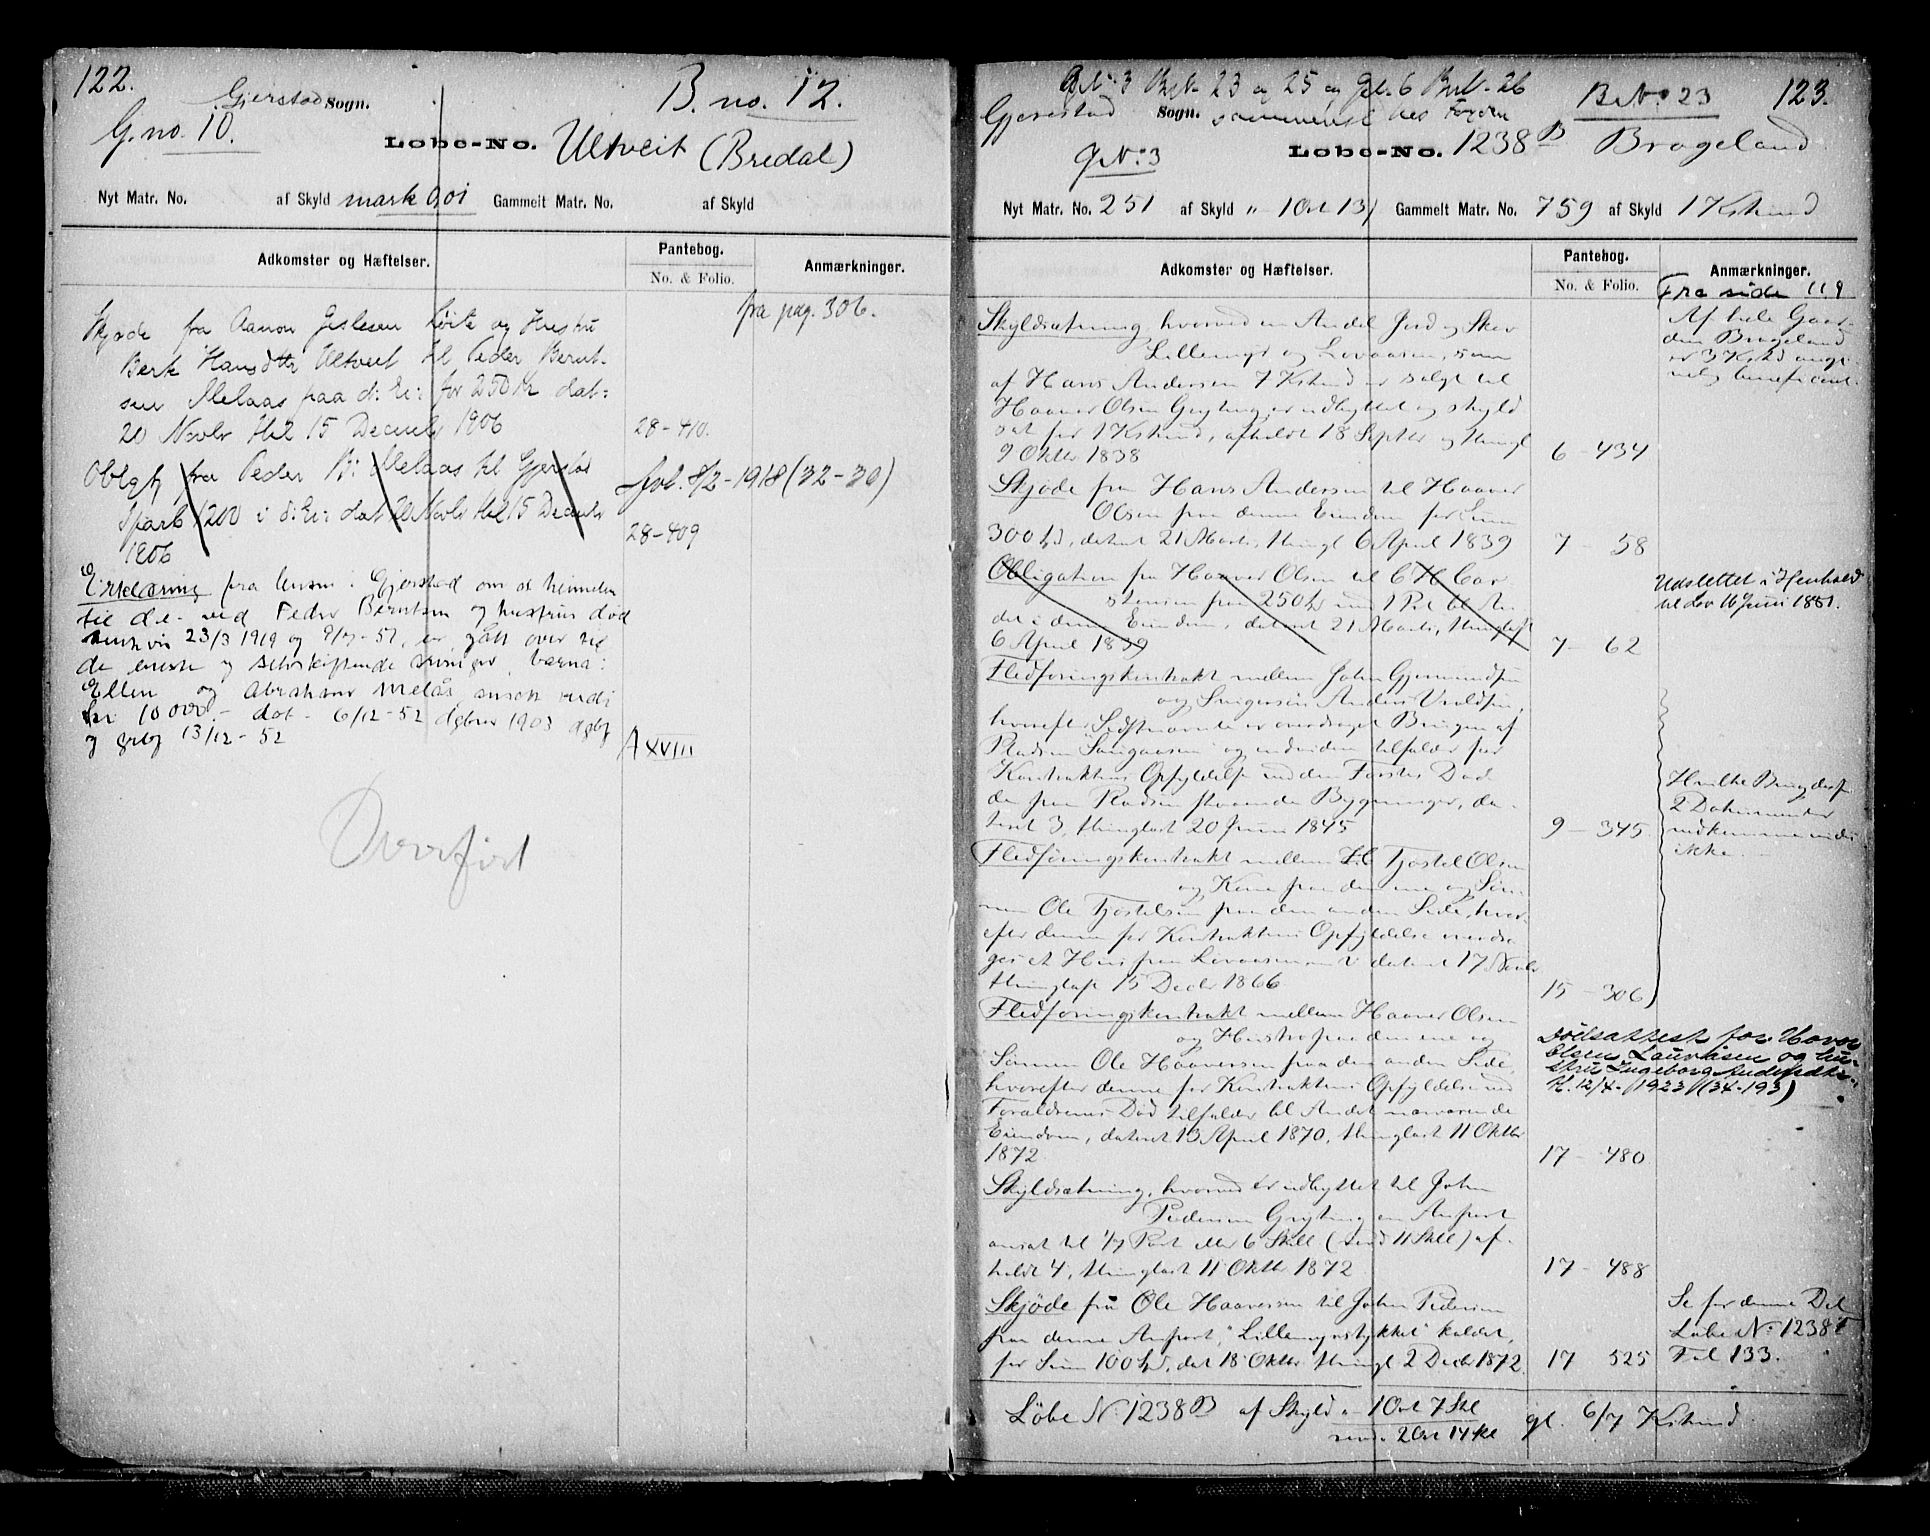 122.
Gjerstad Sogn.
B. no. 12.
G. no. 10.
Løbe-No. Ultveit (Bredal)
Nyt Matr. No. af Skyld mark 0,01 Gammelt Matr. No. af Skyld
Adkomster og Hæftelser.
Pantebog.
No. & Folio.
Anmærkninger.
fra pag. 306.
Skjøde fra Aanon Gislesen og Hustru
Berte Hansdtr Ultveit til Peder Bernt-
sen Melaas paa d: Ei: for 250 Kr dat:
20 Novbr thl 15 Decembr 1906
28-410.
Oblgt fra Peder B: Melaas til Gjerstad
Sparb 1200 i d: Ei: dat 20 Novbr thl 15 Decembr
1906
28-409
Avl. 8/2-1918 (32-30)
Erklæring fra lensm i Gjerstad om at heimelen
til d.e. ved Peder Berntsen og hustrus død
henhvis 23/3 1919 og 9/7-51, er gått over til
de eneste og selvskiftende arvinger, barna:
Ellen og Abraham Melås ansatt verdi
kr 10000.- dat. 6/12-52 dgbnr 1903 dgbf
og grbf 13/12-52
A XVIII
Overført
G№ 3 B№ 23 og 25 og G№ 6 B№ 26
B№ 23
123.
Gjerestad Sogn. sammenst hos
G№ 3
Løbe-No. 1238 B Brageland
Nyt Matr. No. 251 af Skyld " - 1 Ort 13/ Gammelt Matr. No. 759 af Skyld 1 Kshud
Adkomster og Hæftelser.
Pantebog.
No. & Folio.
Anmærkninger.
Fra side 119
Skyldsætning, hvorved en Andel Jord og Skov
Lillemyr og Lovaasen, som
af Hans Andersen 7 Kshud er solgt til
Haaver Olsen Gryting, er udbyttet og skyld
sat for 1 Kshud, afholdt 18 Septbr og thingl
9 Oktbr 1838
6 - 434
Af hele Gaar-
den Brageland
er 3 Kshd
Skjøde fra Hans Andersen til Haaver
Olsen paa denne Eiendom for Sum
300 Spd, dateret 21 Marts, thingl 6 April 1839
7 - 58
Obligation fra Haaver Olsen til C H Car
stensen paa 250 Spd mod 1 Pri bl An
det i denne Eiendom, dateret 21 Marts, thinglæst
6 April 1839
7 - 62
Udslettet i Henhold
til Lov 16 Juni 1851.
Fledføringskontrakt mellem John Gjermundsen
og Svigersøn Anders Uvaldsen,
hvorefter Sidstnævnte er overdraget Brugen af
Pladsen Laugaasen og endvidere tilfalder for
Kontraktens Opfyldelse ved den Førstes Død
de paa Pladsen staaende Bygninger, da-
teret 3, thinglæst 20 Juni 1845
9 - 345
2 Dokumenter
vedkomme
ikke.
Fledføringskontrakt mellem Tjøstel Olsen
og Kone paa den ene og Søn-
nen Ole Tjøstelsen paa den anden Side, hvor-
efter denne for Kontraktens Opfyldelse overdra
ges et Huus paa Lovaasen dateret 17 Novbr
thinglæst 15 Decbr 1866
15 - 306
Fledføringskontrakt mellem Haaver Olsen
og Hustro paa den ene og
Sønnen Ole Haaversen paa den anden Side,
hvorefter denne for Kontraktens Opfyldelse ved
Forældrenes Død tilfalder bl Andet nærværende
Eiendom, dateret 13 April 1870, thinglæst 11 Oktbr
1872
17 - 480
Dødsattest for Hovor
Olsen Lauvåsen og hu-
stru Ingeborg Andersdtr.
tl. 12/4-1923 (34-193)
Skyldsætning, hvorved er udbyttet til John
Pedersen Gryting en Anpart
ansat til 1/7 Part eller 6 Skill (rvd 11 Skill) af-
holdt 4, thinglæst 11 Oktbr 1872
17 - 488
Skjøde fra Ole Haaversen til John Pedersen
paa denne Anpart, "Lillemyrstykket" kaldet,
for Sum 100 Spd, dat 18 Oktbr thingl 2 Decbr 1872
17 525
Se for denne Del
Løbe №. 1238 F
Fol 133.
Løbe № 1238 B af Skyld " 1 Ort 7 Skl
rvd. 2 Ort 14 Skl
gl. 6/7 Kshud